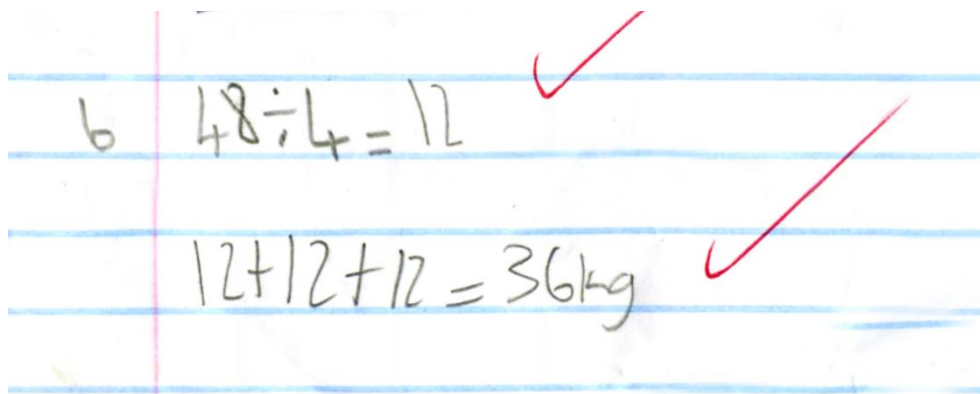 b 48÷4=12
12+12+12=36kg